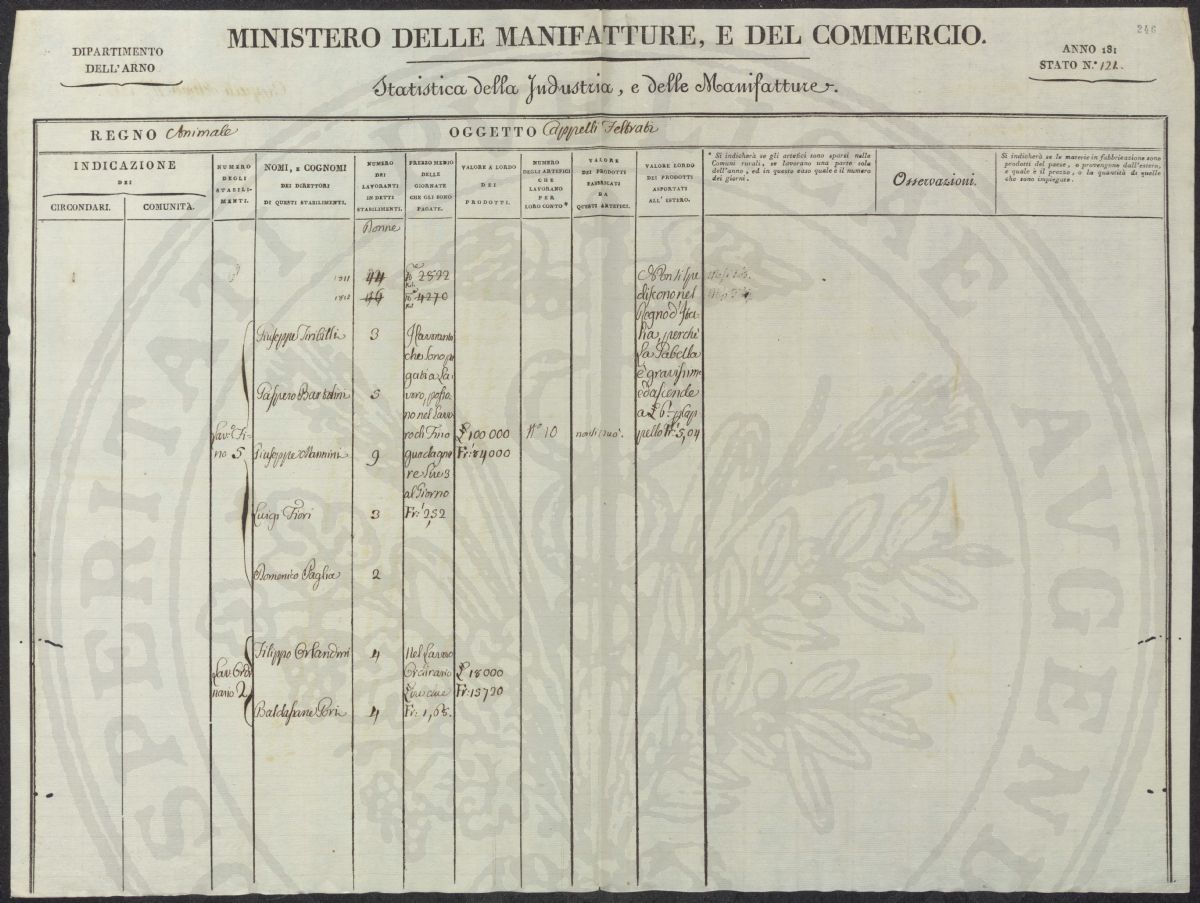 246
MINISTERO DELLE MANIFATTURE, E DEL COMMERCIO.
DIPARTIMENTO
DELL'ARNO
ANNO 181
STATO N.° 121.
Statistica della Industria, e delle Manifatture.
REGNO Animale
OGGETTO Cappelli Feltrati
INDICAZIONE
DEI
CIRCONDARI.
COMUNITÀ.
NUMERO
DEGLI
STABILI-
MENTI.
NOMI, E COGNOMI
DEI DIRETTORI
DI QUESTI STABILIMENTI.
NUMERO
DEI
LAVORANTI
IN DETTI
STABILIMENTI.
PREZZO MEDIO
DELLE
GIORNATE
CHE GLI SONO
PAGATE.
VALORE A LORDO
DEI
PRODOTTI.
NUMERO
DEGLI ARTEFICI
CHE
LAVORANO
PER
LORO CONTO *
VALORE
DEI PRODOTTI
FABBRICATI
DA
QUESTI ARTEFICI.
VALORE LORDO
DEI PRODOTTI
ASPORTATI
ALL'ESTERO.
* Si indicherà se gli artefici sono sparsi nelle
Comuni rurali, se lavorano una parte sola
dell'anno, ed in questo caso quale è il numero
dei giorni.
Osservazioni.
Si indicherà se le materie in fabbricazione sono
prodotti del paese, o provengono dall'estero,
e quale è il prezzo, o la quantità di quelle
che sono impiegate.
1811 44 2592
1812 46 4270
Lav.° Fi-
no 5
Giuseppe 3
Bartolini 5
Giuseppe Mannini 9
Luigi Fiori 3
Domenico Paglia 2
I lavoranti
che sono pa
gati a La-
voro, posso
no nel Lavo
ro di Fino
guadagna
re Lire 3
al Giorno
Fr. 2,52
£ 100 000
Fr. 84000
N.° 10
non si può.
Non si spe
discono nel
Regno d'Ita
lia, perchè
la Gabella
è gravissima
ed ascende
a £ 6. p. Cap
pello Fr. 5,04
Lav. Ordi
nario 2
Filippo Orlandini 4
Baldassarre Gori 4
Nel Lavoro
Ordinario
Lire due
Fr. 1,68.
£ 18000
Fr. 15720
PROSPERITATI PUBLICAE AUGENDAE